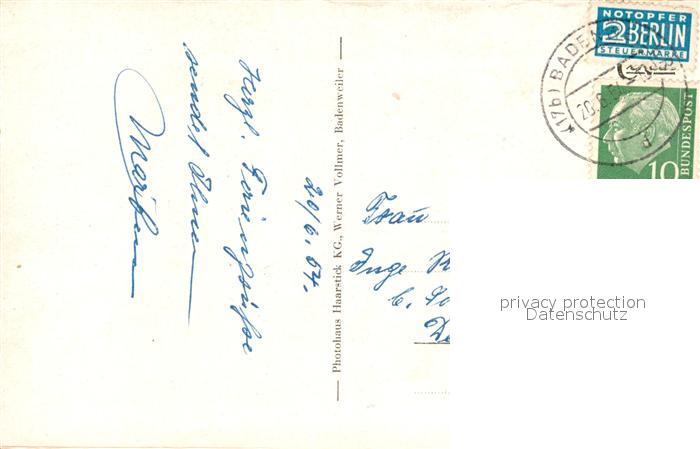 20/6. 54.
Herzl. Feriengrüße
sendet Ihnen
Photohaus Haarstick KG., Werner Vollmer, Badenweiler
Frau
Inge
NOTOPFER
2 BERLIN
STEUERMARKE
(17b) BADEN
20.6.5
d
10
BUNDESPOST
privacy protection
Datenschutz